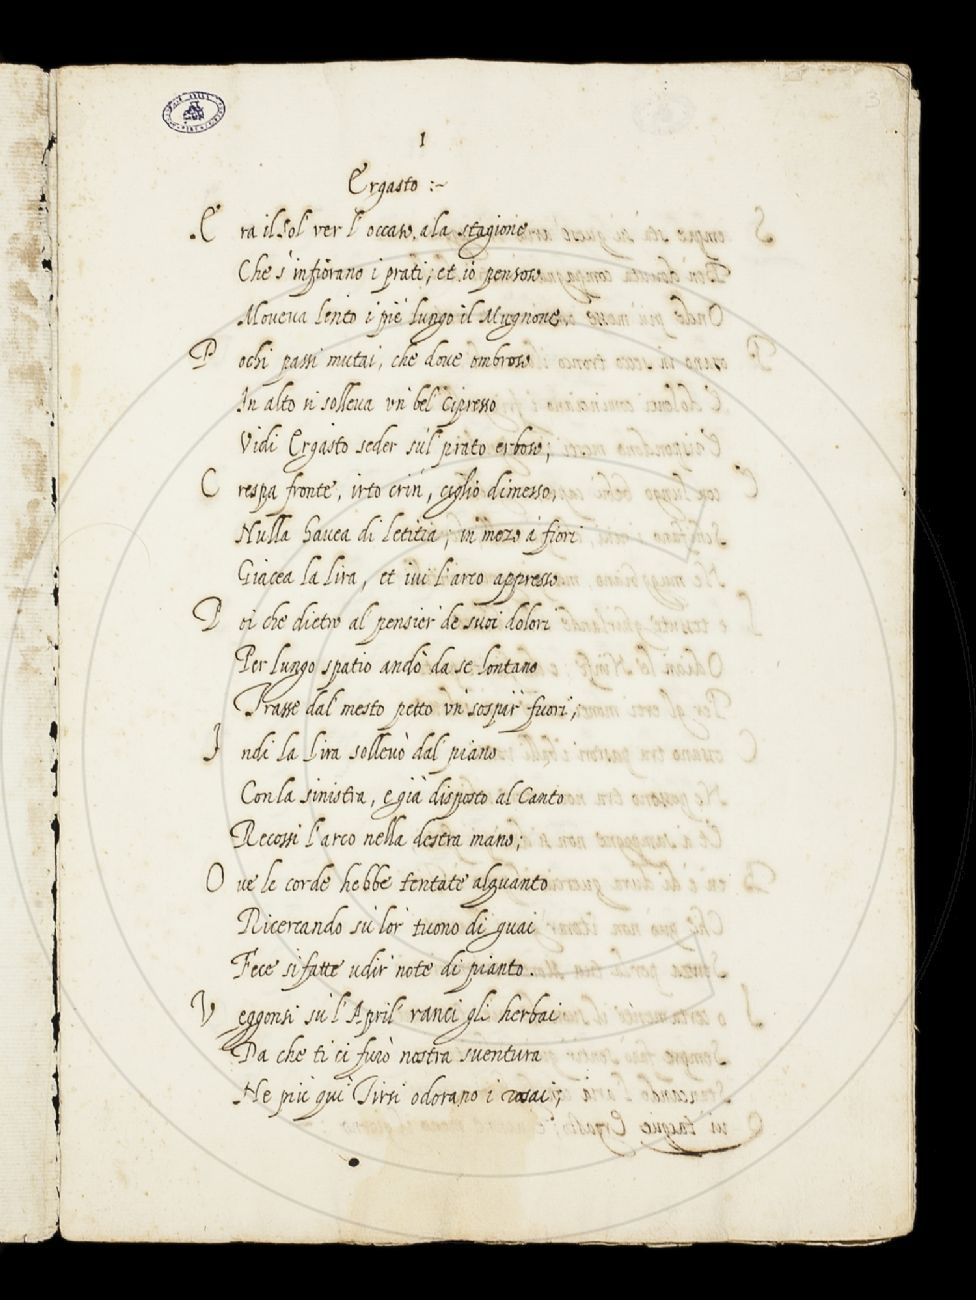 3
1
Ergasto :~
E ra il Sol ver l'occaso, a la stagione
Che s'infiorano i prati; et io pensoso
Moveva lento i piè lungo il Mugnone
P ochi passi mutai, che dove ombroso
In alto si solleva un bel Cipresso
Vidi Ergasto seder su'l prato erboso;
C respa fronte, irto crin, ciglio dimesso,
Nulla havea di letitia; in mezo a' fiori
Giacea la lira, et ivi l'arco appresso
P oi che dietro al pensier de suoi dolori
Per lungo spatio andò da se lontano
Trasse dal mesto petto un sospir fuori;
I ndi la lira sollevò dal piano
Con la sinistra, e già disposto al Canto
Recossi l'arco nella destra mano;
O ve le corde hebbe tentate alquanto
Ricercando su lor tuono di guai
Fece sì fatte udir note di pianto.
V eggonsi su l'April ranci gli herbai
Da che ti ci furò nostra sventura
Ne più qui Tirsi odorano i rosai;